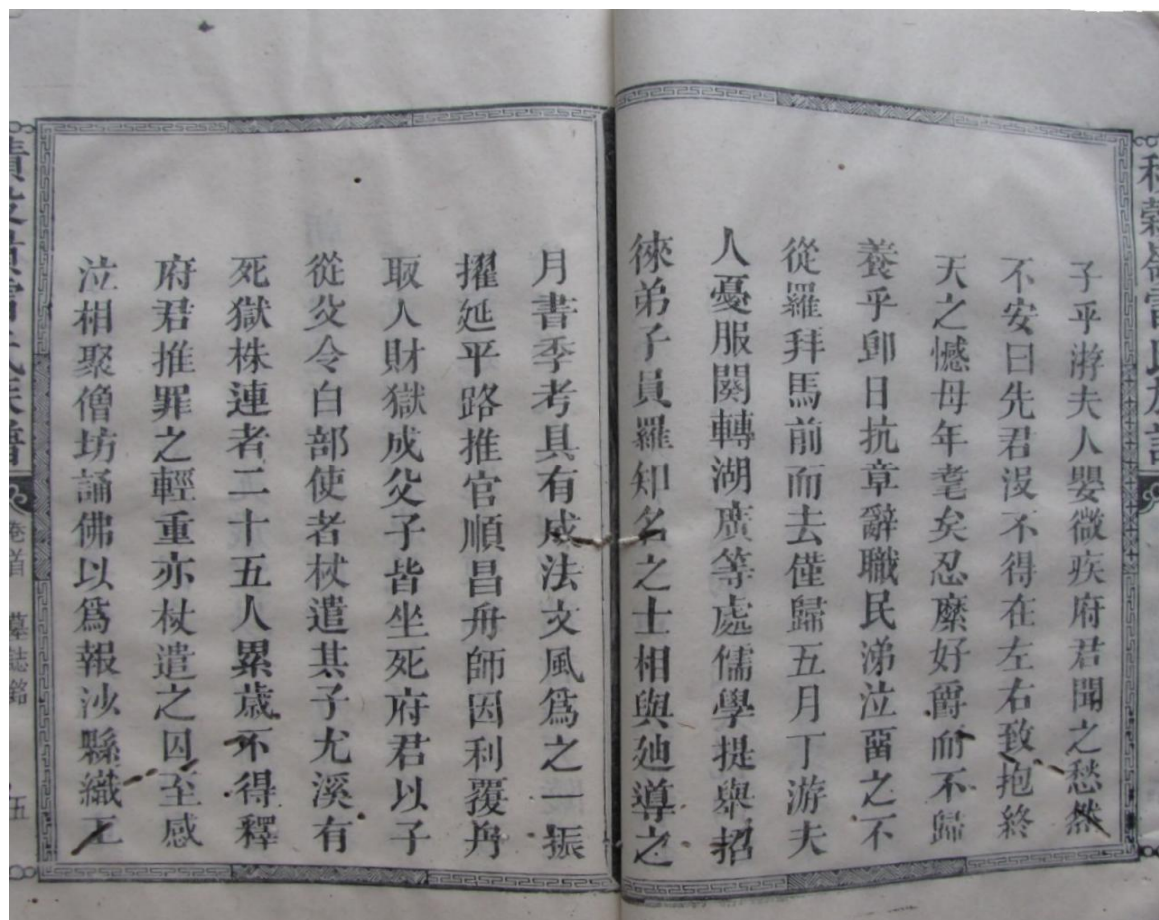 子乎游夫人嬰微疾府君聞之愁然
不安曰先君沒不得在左右致抱終
天之憾母年耄矣忍縻好爵而不歸
養乎卽日抗章辭職民涕泣畱之不
從羅拜馬前而去僅歸五月丁游夫
人憂服闋轉湖廣等處儒學提舉招
徠弟子員羅知名之士相與廸導之
月書季考具有成法文風爲之一振
擢延平路推官順昌舟師因利覆舟
取人財獄成父子皆坐死府君以子
從父令白部使者杖遣其子尤溪有
死獄株連者二十五人累歲不得釋
府君推罪之輕重亦杖遣之囚至感
泣相聚僧坊誦佛以爲報沙縣織工
氏族譜
卷首
墓誌銘
五